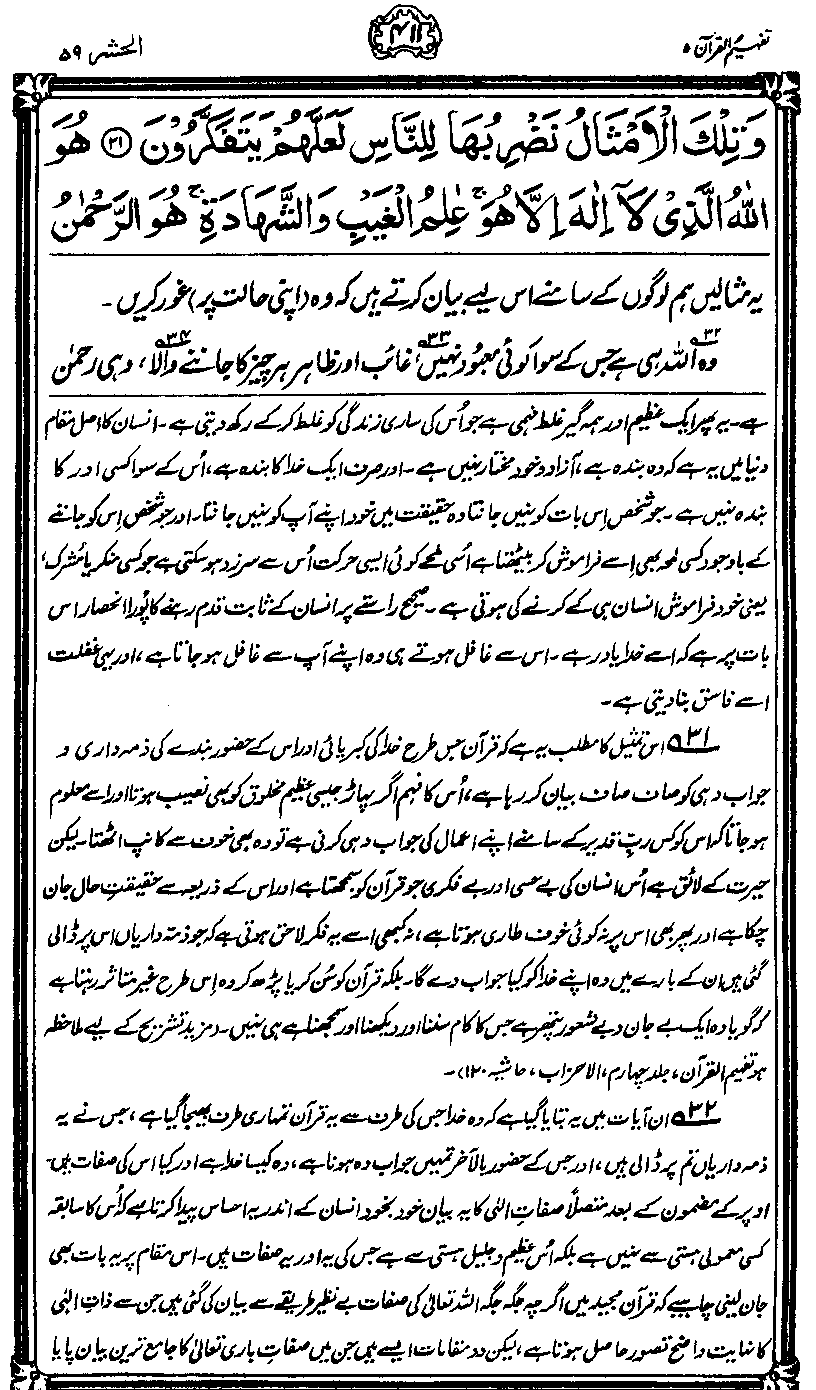 تفہیم القرآن ۵
۴۱۱
الحشر ۵۹
وَتِلْكَ الْاَمْثَالُ نَضْرِبُهَا لِلنَّاسِ لَعَلَّهُمْ يَتَفَكَّرُوْنَ ﴿۲۱﴾ هُوَ
اللّٰهُ الَّذِىْ لَاۤ اِلٰهَ اِلَّا هُوَ ۚ عٰلِمُ الْغَيْبِ وَالشَّهَادَةِ ۚ هُوَ الرَّحْمٰنُ
یہ مثالیں ہم لوگوں کے سامنے اس لیے بیان کرتے ہیں کہ وہ (اپنی حالت پر) غور کریں۔
وہ اللہ۳۲ ہی ہے جس کے سوا کوئی معبود نہیں۳۳، غائب اور ظاہر ہر چیز کا جاننے والا۳۴، وہی رحمٰن
ہے۔ یہ پھر ایک عظیم اور ہمہ گیر غلط فہمی ہے جو اُس کی ساری زندگی کو غلط کر کے رکھ دیتی ہے۔ انسان کا اصل مقام
دنیا میں یہ ہے کہ وہ بندہ ہے، آزاد و خود مختار نہیں ہے۔ اور صرف ایک خدا کا بندہ ہے، اُس کے سوا کسی اور کا
بندہ نہیں ہے۔ جو شخص اِس بات کو نہیں جانتا وہ حقیقت میں خود اپنے آپ کو نہیں جانتا۔ اور جو شخص اِس کو جاننے
کے باوجود کسی لمحہ بھی اِسے فراموش کر بیٹھتا ہے اُسی لمحے کوئی ایسی حرکت اُس سے سرزد ہو سکتی ہے جو کسی منکر یا مُشرک،
یعنی خود فراموش انسان ہی کے کرنے کی ہوتی ہے۔ صحیح راستے پر انسان کے ثابت قدم رہنے کا پُورا انحصار اس
بات پر ہے کہ اسے خدا یاد رہے۔ اس سے غافل ہوتے ہی وہ اپنے آپ سے غافل ہو جاتا ہے، اور یہی غفلت
اسے فاسق بنا دیتی ہے۔
۳۱؎ اس تمثیل کا مطلب یہ ہے کہ قرآن جس طرح خدا کی کبریائی اور اس کے حضور بندے کی ذمہ داری و
جواب دہی کو صاف صاف بیان کر رہا ہے، اُس کا فہم اگر پہاڑ جیسی عظیم مخلوق کو بھی نصیب ہوتا اور اسے معلوم
ہو جاتا کہ اس کو کس ربِّ قدیر کے سامنے اپنے اعمال کی جواب دہی کرنی ہے تو وہ بھی خوف سے کانپ اٹھتا۔ لیکن
حیرت کے لائق ہے اُس انسان کی بے حسی اور بے فکری جو قرآن کو سمجھتا ہے اور اس کے ذریعہ سے حقیقتِ حال جان
چکا ہے اور پھر بھی اس پر نہ کوئی خوف طاری ہوتا ہے، نہ کبھی اسے یہ فکر لاحق ہوتی ہے کہ جو ذمہ داریاں اس پر ڈالی
گئی ہیں ان کے بارے میں وہ اپنے خدا کو کیا جواب دے گا۔ بلکہ قرآن کو سُن کر یا پڑھ کر وہ اِس طرح غیر متاثر رہتا ہے
کہ گویا وہ ایک بے جان و بے شعور پتھر ہے جس کا کام سننا اور دیکھنا اور سمجھنا ہے ہی نہیں۔ (مزید تشریح کے لیے ملاحظہ
ہو تفہیم القرآن، جلد چہارم، الاحزاب، حاشیہ ۱۲۰)۔
۳۲؎ ان آیات میں یہ بتایا گیا ہے کہ وہ خدا جس کی طرف سے یہ قرآن تمہاری طرف بھیجا گیا ہے، جس نے یہ
ذمہ داریاں تم پر ڈالی ہیں، اور جس کے حضور بالآخر تمہیں جواب دہ ہونا ہے، وہ کیسا خدا ہے اور کیا اس کی صفات ہیں۔
اوپر کے مضمون کے بعد متصلًا صفاتِ الٰہی کا یہ بیان خود بخود انسان کے اندر یہ احساس پیدا کرتا ہے کہ اُس کا سابقہ
کسی معمولی ہستی سے نہیں ہے بلکہ اُس عظیم و جلیل ہستی سے ہے جس کی یہ اور یہ صفات ہیں۔ اس مقام پر یہ بات بھی
جان لینی چاہیے کہ قرآن مجید میں اگرچہ جگہ جگہ اللہ تعالیٰ کی صفات بے نظیر طریقے سے بیان کی گئی ہیں جن سے ذاتِ الٰہی
کا نہایت واضح تصور حاصل ہوتا ہے، لیکن دو مقامات ایسے ہیں جن میں صفاتِ باری تعالیٰ کا جامع ترین بیان پایا